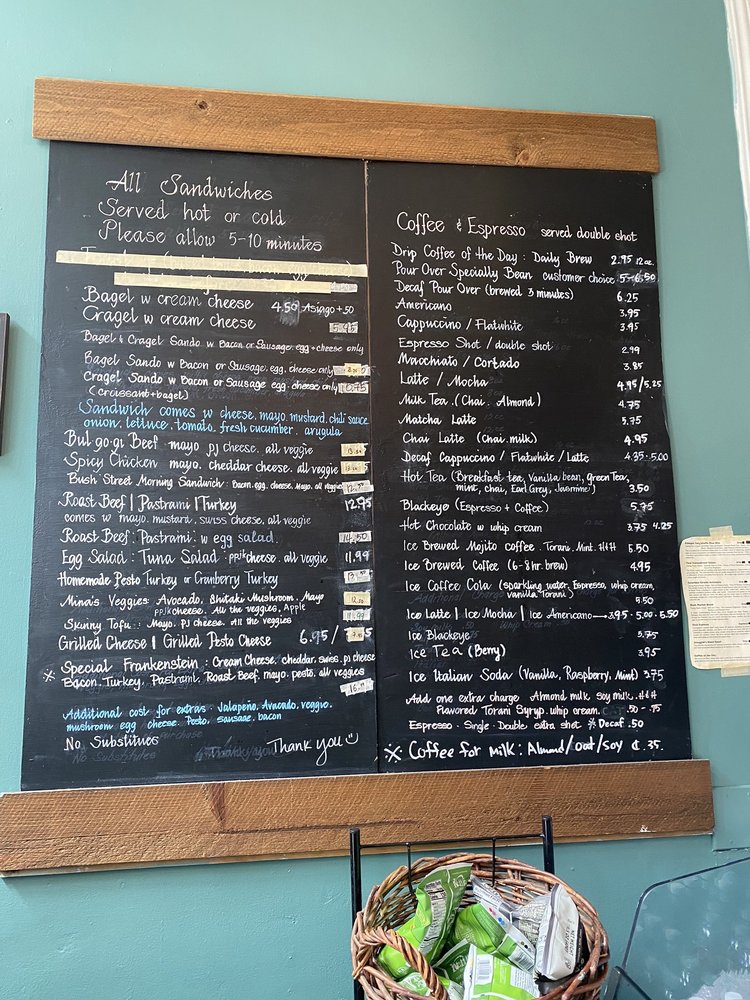 All Sandwiches
Served hot or cold
Please allow 5-10 minutes
Bagel w cream cheese 4.50 Asiago +50
Cragel w cream cheese 5.95
Bagel & Cragel Sando w Bacon or Sausage. egg + cheese only
Bagel Sando w Bacon or Sausage. egg. cheese only
Cragel Sando w Bacon or Sausage egg. cheese only 10.75
(croissant + bagel)
Sandwich comes w cheese, mayo, mustard, chili sauce
onion, lettuce, tomato, fresh cucumber, arugula
Bul go-gi Beef mayo pj cheese. all veggie
Spicy Chicken mayo, cheddar cheese. all veggie
Bush Street Morning Sandwich: Bacon. egg. cheese. Mayo. all veggie
Roast Beef | Pastrami | Turkey 12.75
comes w mayo. mustard, swiss cheese, all veggie
Roast Beef. Pastrami. w egg salad. 14.50
Egg Salad. Tuna Salad. ppjk cheese. all veggie 11.99
Homemade Pesto Turkey or Cranberry Turkey
Mina's Veggies. Avocado, Shitaki Mushroom. Mayo
ppjk cheese. All the veggies, Apple
Skinny Tofu. Mayo. PJ cheese. all veggies
Grilled Cheese | Grilled Pesto Cheese 6.95 /
※ Special Frankenstein: Cream Cheese. cheddar. swiss. pj cheese
Bacon, Turkey, Pastrami, Roast Beef, mayo, pesto, all veggies
Additional cost for extras. Jalapeño, Avocado, veggie.
mushroom egg cheese. Pesto. sausage, bacon
No Substitues
Thank you
Coffee & Espresso served double shot
Drip Coffee of the Day: Daily Brew 2.95 12oz.
Pour Over Specially Bean customer choice 6.50
Decaf Pour Over (brewed 3 minutes) 6.25
Americano 3.95
Cappuccino / Flatwhite 3.95
Espresso Shot / double shot 2.99
Macchiato / Cortado 3.85
Latte / Mocha 4.95/5.25
Milk Tea. (Chai. Almond) 4.75
Matcha Latte 5.75
Chai Latte (Chai. milk) 4.95
Decaf Cappuccino / Flatwhite / Latte 4.95 · 5.00
Hot Tea (Breakfast tea, Vanilla bean, Green Tea,
mint, chai, Earl Grey, Jasmine) 3.50
Blackeye (Espresso + Coffee) 5.75
Hot Chocolate w whip cream 3.75 4.25
Ice Brewed Mojito coffee. Torani. Mint. 5.50
Ice Brewed Coffee (6-8hr brew) 4.95
Ice Coffee Cola (sparkling water, Espresso, whip cream,
vanilla Torani) 5.50
Ice Latte | Ice Mocha | Ice Americano — 3.95 · 5.00 · 5.50
Ice Blackeye 5.75
Ice Tea (Berry) 3.95
Ice Italian Soda (Vanilla, Raspberry, Mint) 3.75
Add one extra charge Almond milk soy milk
Flavored Torani Syryp. whip cream. .50 - .75
Espresso. Single. Double extra shot ※ Decaf .50
※ Coffee for milk: Almond/oat/soy ¢ .35.